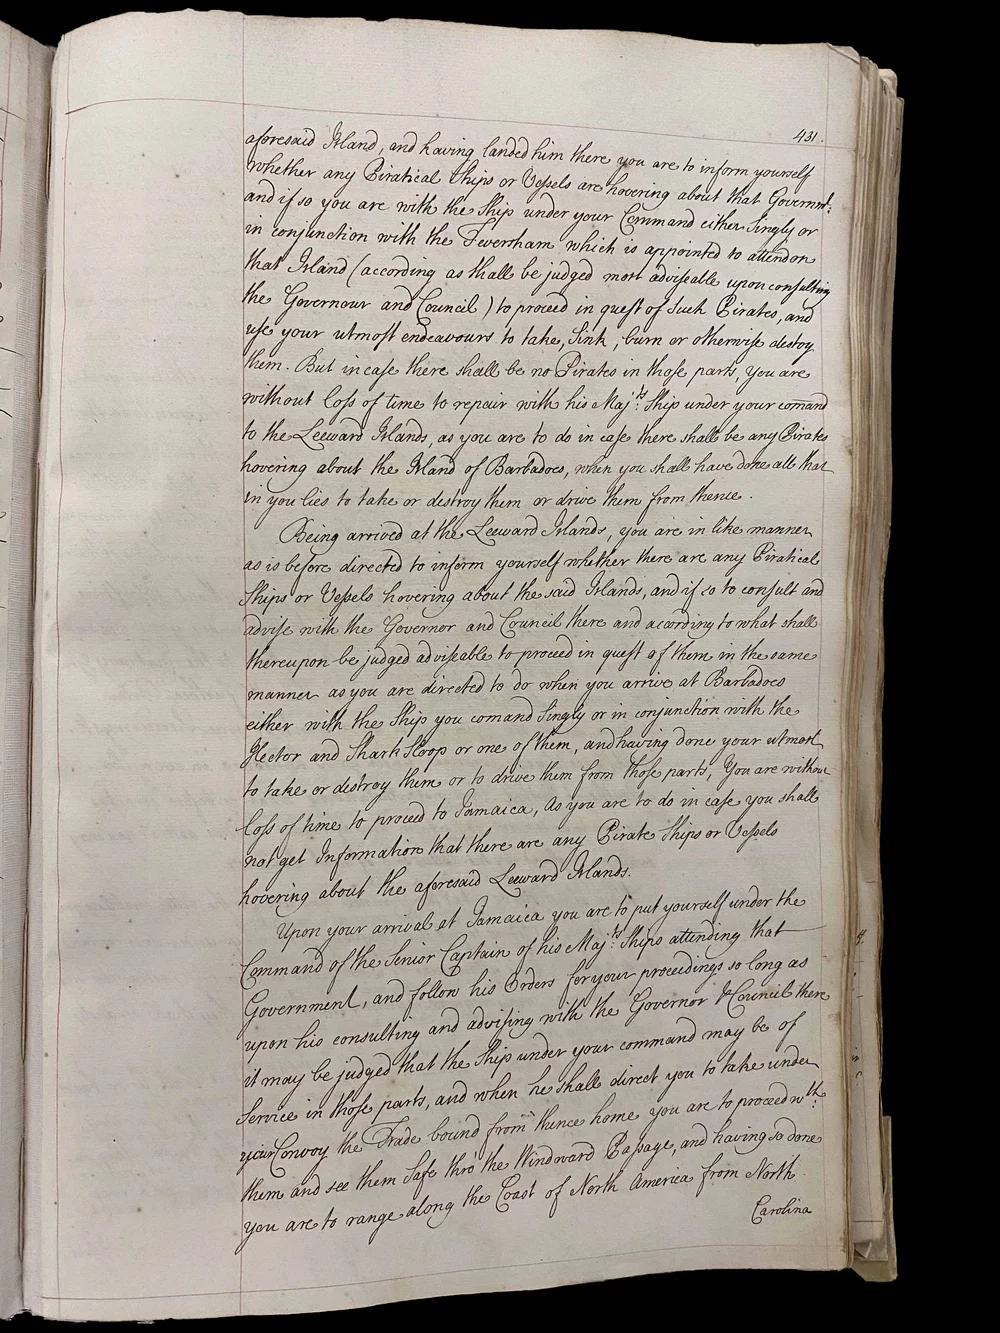 431.
aforesaid Island, and having landed him there you are to inform yourself
whether any Piratical Ships or Vessels are hovering about that Governmt:
and if so you are with the Ship under your Command either Singly or
in conjunction with the Feversham which is appointed to attend on
that Island (according as shall be judged most adviseable upon consulting
the Governour and Council) to proceed in quest of such Pirates, and
use your utmost endeavours to take, Sink, burn or otherwise destoy
them. But in case there shall be no Pirates in those parts, you are
without loss of time to repair with his Majts: Ship under your comand
to the Leeward Islands, as you are to do in case there shall be any Pirates
hovering about the Island of Barbadoes, when you shall have done all that
in you lies to take or destroy them or drive them from thence.
Being arrived at the Leeward Islands, you are in like manner
as is before directed to inform yourself whether there are any Piratical
Ships or Vessels hovering about the said Islands, and if so to consult and
advise with the Governor and Council there and according to what shall
thereupon be judged adviseable to proceed in quest of them in the same
manner as you are directed to do when you arrive at Barbadoes
either with the Ship you comand Singly or in conjunction with the
Hector and Shark Sloop or one of them, and having done your utmost
to take or destroy them or to drive them from those parts, You are without
loss of time to proceed to Jamaica, As you are to do in case you shall
not get Information that there are any Pirate Ships or Vessels
hovering about the aforesaid Leeward Islands.
Upon your arrival at Jamaica you are to put yourself under the
Command of the Senior Captain of his Majts: Ships attending that
Government, and follow his Orders for your proceedings so long as
upon his consulting and advising with the Governor & Council there
it may be judged that the Ship under your command may be of
Service in those parts, and when he shall direct you to take under
your Convoy the Trade bound from thence home you are to proceed wth:
them and see them Safe thro' the Windward Passage, and having so done
you are to range along the Coast of North America from North
Carolina